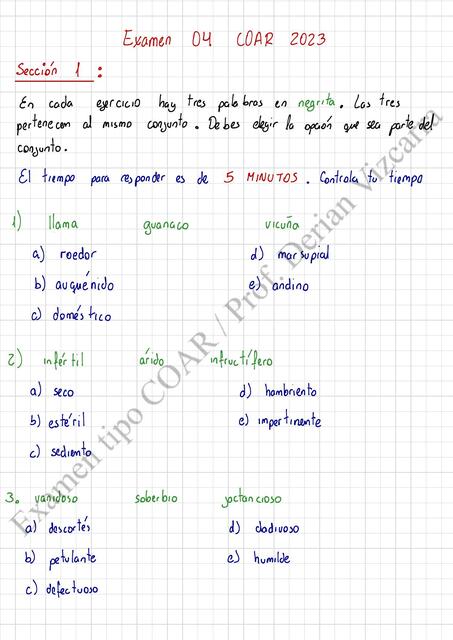 Examen 04 COAR 2023
Sección 1 :
En cada ejercicio hay tres palabras en negrita. Las tres
pertenecen al mismo conjunto. Debes elegir la opción que sea parte del
conjunto.
El tiempo para responder es de 5 MINUTOS. Controla tu tiempo
1) llama guanaco vicuña
a) roedor d) marsupial
b) auquénido e) andino
c) doméstico
2) infértil árido infructífero
a) seco d) hambriento
b) estéril e) impertinente
c) sediento
3. vanidoso soberbio jactancioso
a) descortés d) dadivoso
b) petulante e) humilde
c) defectuoso
Examen tipo COAR / Prof. Derian Vizcarra